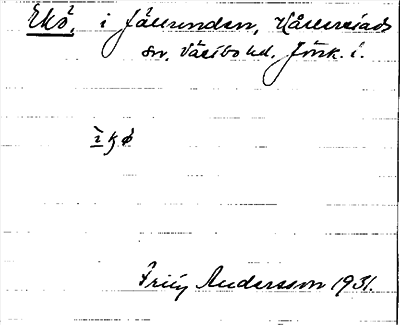 Ekö, i Fällunden, Kållerstads
sn, Västbo hd, Jönk. l.
ìkø
Frity Andersson 1931.